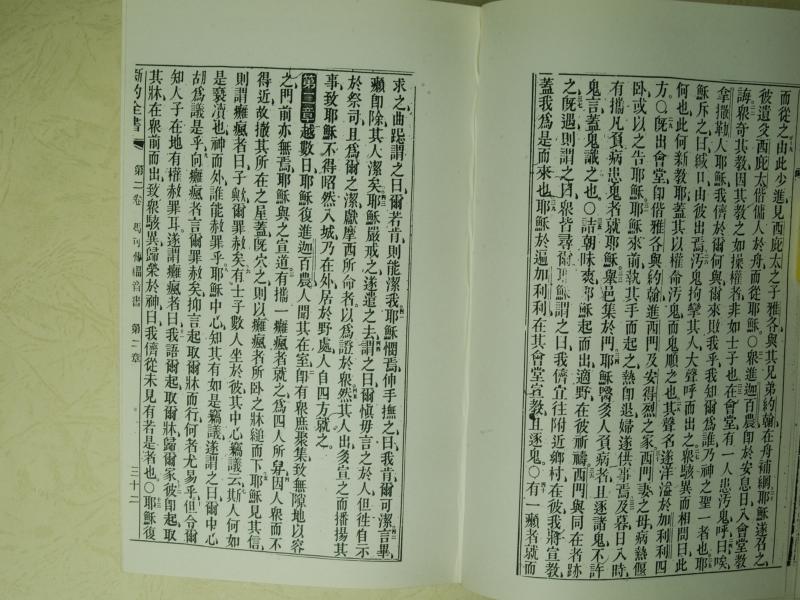 而從之由此少進見西庇太之子雅各與其兄弟約翰在舟補網耶穌遂召之
彼遺父西庇太偕傭人於舟而從耶穌○衆進迦百農卽於安息日入會堂教
誨衆奇其教因其教之如操權者非如士子也在會堂有一人患汚鬼呼曰唉
拿撒勒人耶穌我儕於爾何與爾來敗我乎我知爾爲誰乃神之聖一者也耶
穌斥之曰緘口由彼出焉汚鬼拘攣其人大聲呼而出之衆駭異而相問曰此
何也此何新教耶蓋其以權命汚鬼而鬼順之也其聲名遂洋溢於加利利四
方○旣出會堂卽偕雅各與約翰進西門及安得烈之家西門妻之母病熱偃
臥或以之告耶穌耶穌來前執其手而起之熱卽退婦遂供事焉及暮日入時
有攜凡負病患鬼者就耶穌舉邑集於門耶穌醫多人負病者且逐諸鬼不許
鬼言蓋鬼識之也○詰朝味爽耶穌起而出適野在彼祈禱西門與同在者跡
之旣遇則謂之曰衆皆尋爾耶穌謂之曰我儕宜往附近鄉村在彼我將宣教
蓋我爲是而來也耶穌於遍加利利在其會堂宣教且逐鬼○有一癩者就而
求之曲跽謂之曰爾若肯則能潔我耶穌憫焉伸手撫之曰我肯爾可潔言畢
癩卽除其人潔矣耶穌嚴戒之遂遣之去謂之曰爾愼毋言之於人但徃自示
於祭司且爲爾之潔獻摩西所命者以爲證於衆然其人出多宣之而播揚其
事致耶穌不得昭然入城乃在外居於野處人自四方就之
第二章越數日耶穌復進迦百農人聞其在室卽有衆庶聚集致無隙地以容
之門前亦無焉耶穌與之宣道有攜一癱瘋者就之爲四人所舁因人衆而不
得近故撤其所在之屋蓋旣穴之則以癱瘋者所臥之牀縋而下耶穌見其信
則謂癱瘋者曰子歟爾罪赦矣有士子數人坐於彼其中心竊議云斯人何如
是褻瀆也神而外誰能赦罪乎耶穌中心知其有如是竊議遂謂之曰爾中心
胡爲議是乎向癱瘋者言爾罪赦矣抑言起取爾牀而行何者尤易乎但令爾
知人子在地有權赦罪耳遂謂癱瘋者曰我語爾起取爾牀歸爾家彼卽起取
其牀在衆前而出致衆駭異歸榮於神曰我儕從未見有若是者也○耶穌復
新約全書 第二卷 馬可傳福音書 第二章 三十二